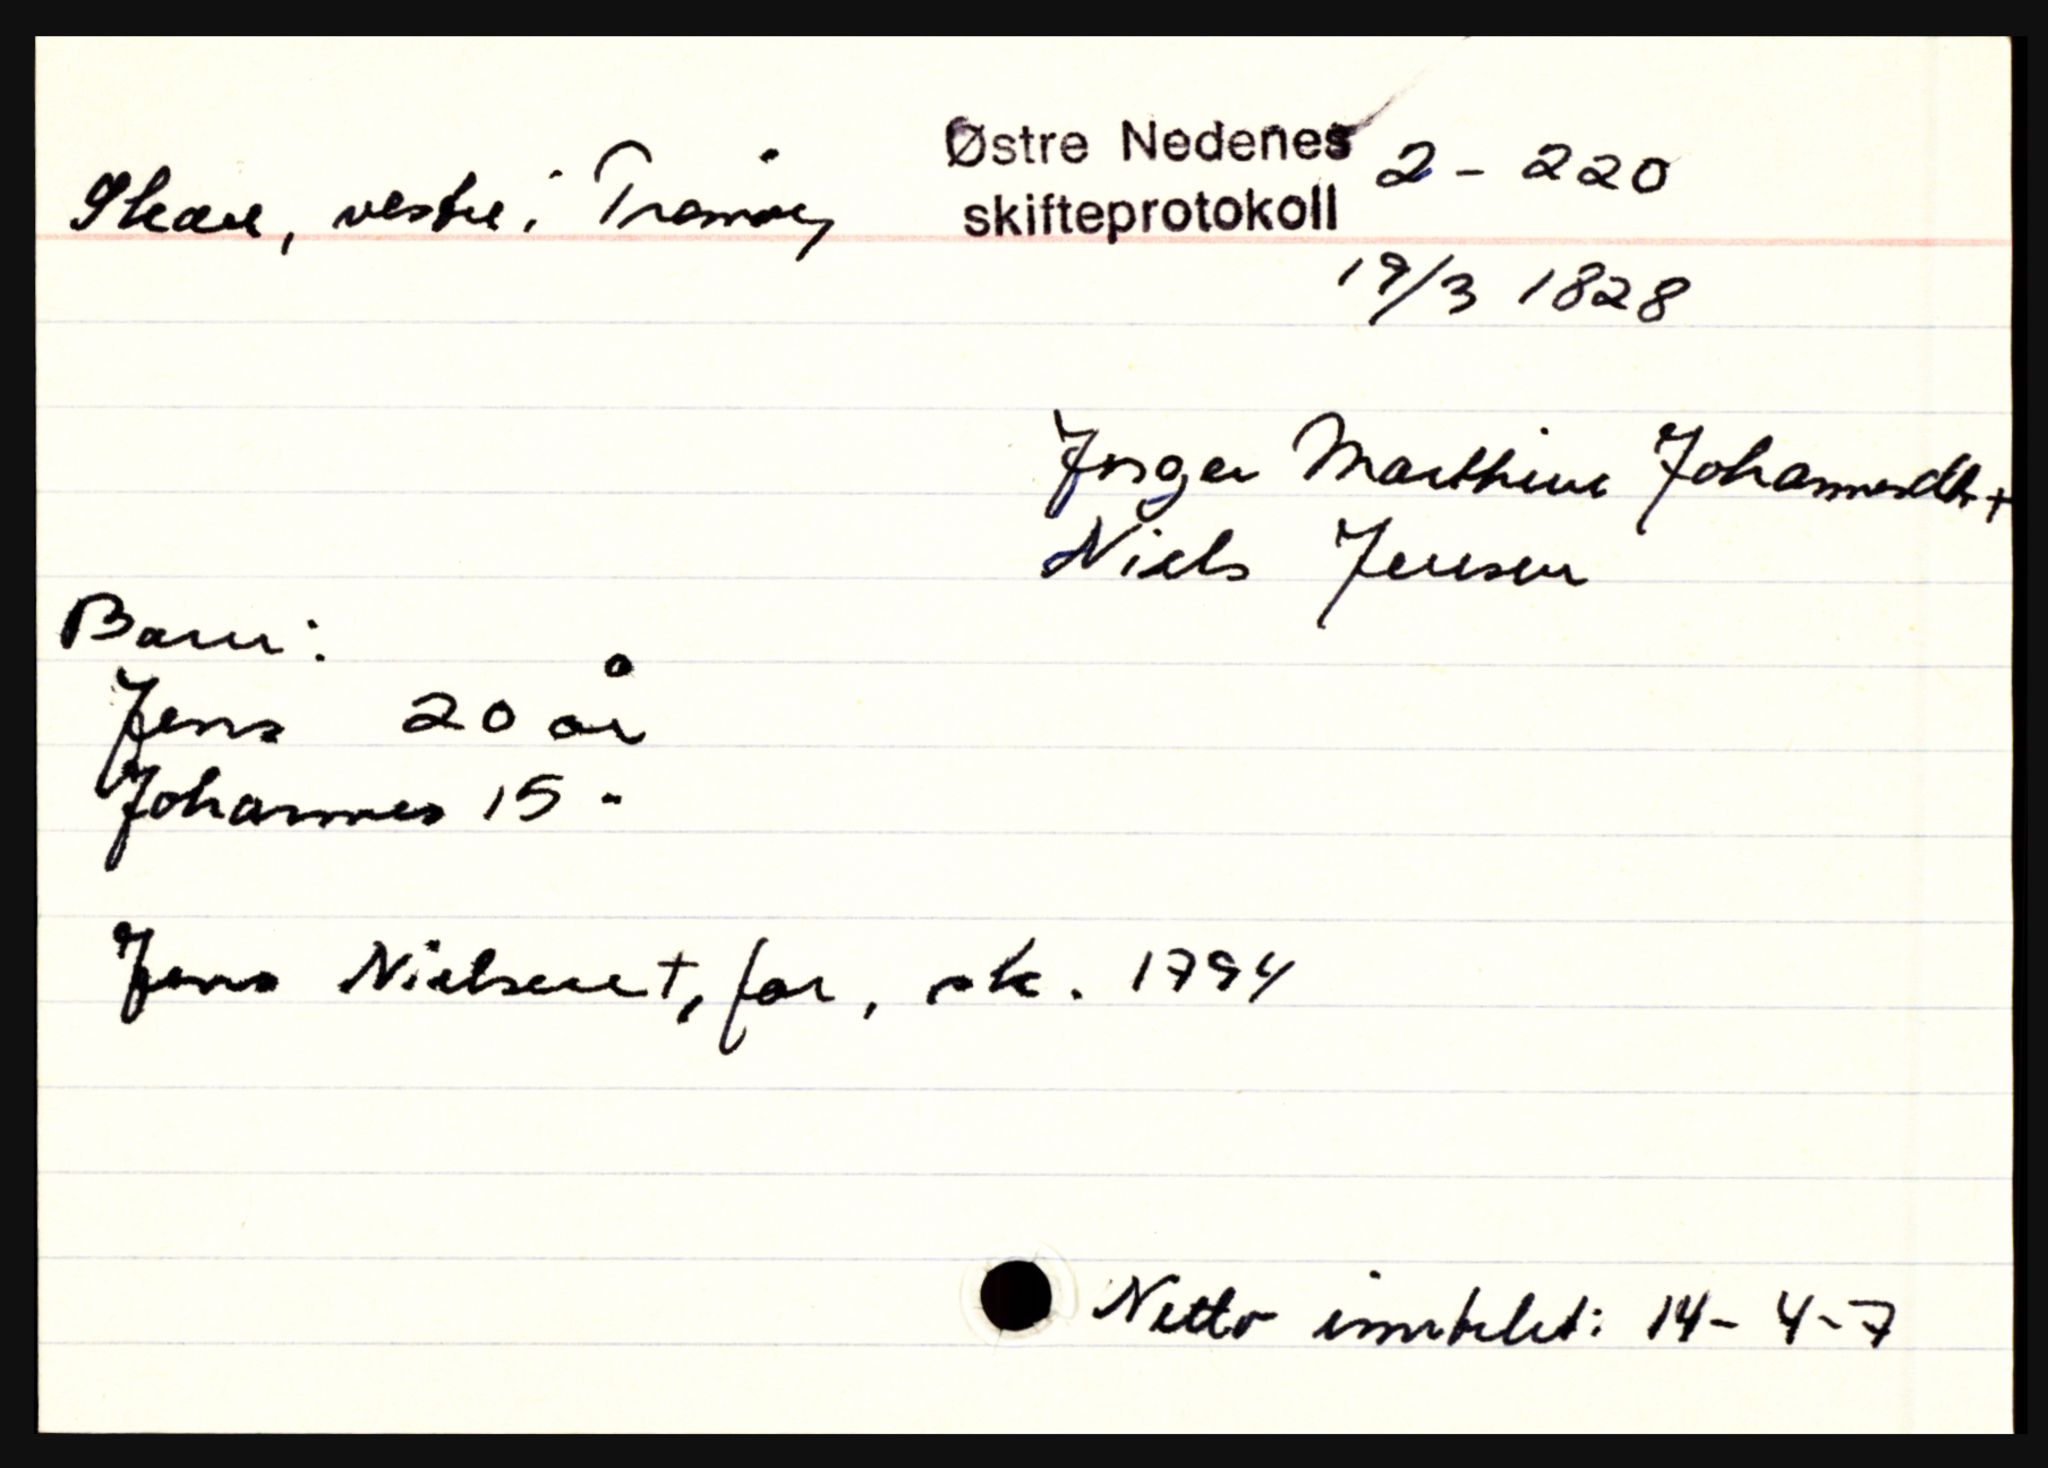 Skare, vestre i Tromøy
Østre Nedenes 2 - 220
skifteprotokoll
19/3 1828
Jørgen Marthine Johannesdtr +
Niels Jensen
Barn:
Jens 20 år
Johannes 15 "
Jens Nielsen +, far, sk. 1794
Netto innteket: 14 - 4 - 7